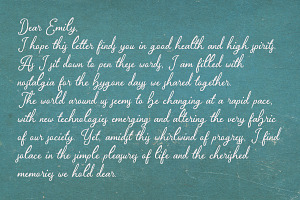 Dear Emily,
I hope this letter finds you in good health and high spirits.
As I sit down to pen these words, I am filled with
nostalgia for the bygone days we shared together.
The world around us seems to be changing at a rapid pace,
with new technologies emerging and altering the very fabric
of our society. Yet, amidst this whirlwind of progress, I find
solace in the simple pleasures of life and the cherished
memories we hold dear.